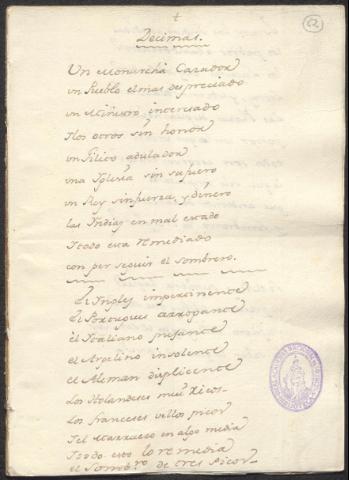 Decimas.
Un Monarcha Cazador
un Pueblo el mas despreciado
un Ministro interesado
Y los otros sin honor
un Filico adulador
una Iglesia sin su fuero
un Rey sin fuerza, y dinero
las Yndias en mal estado
Y todo esta remediado
con perseguir el sombrero.
El Ingles impertinente
el Portugues arrogante
el Italiano pujante
el Argelino insolente
el Aleman displicente
Los Holandeses muy ricos
Los franceses
Y el Marrueco en algo media
Y todo esto lo remedia
el Sombro. de tres Picos